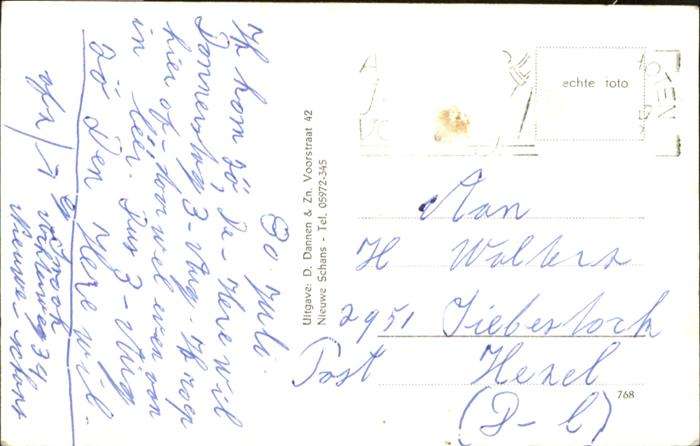 30. Juli.
Ik kom zö, De-Here wil
Donnerstag 3-Aug. Ik roep
hier of- Voorwel even von
in Leer. Dus 3-Aug
zö Den Here wil-
afz/
Nieuwe-schans
Uitgave: D. Dannen & Zn. Voorstraat 42
Nieuwe Schans - Tel. 05972-345
echte foto
Aan
H Wolters
2951 Tiebestock
Post Hesel
(D-b)
768